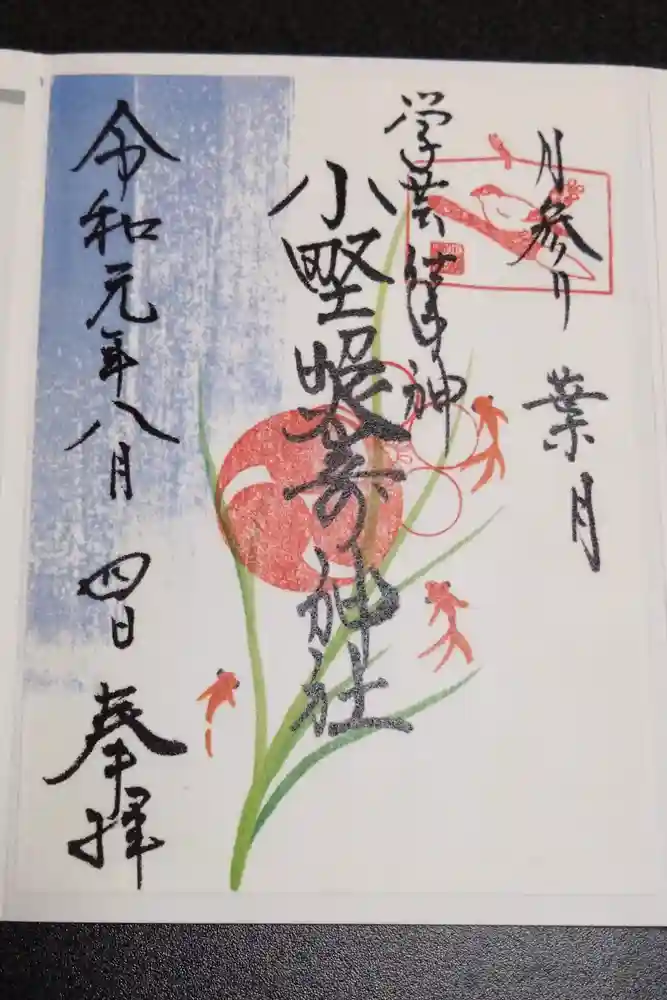 月参り 葉月
学芸仕事神
小野照崎神社
令和元年八月四日 奉拝